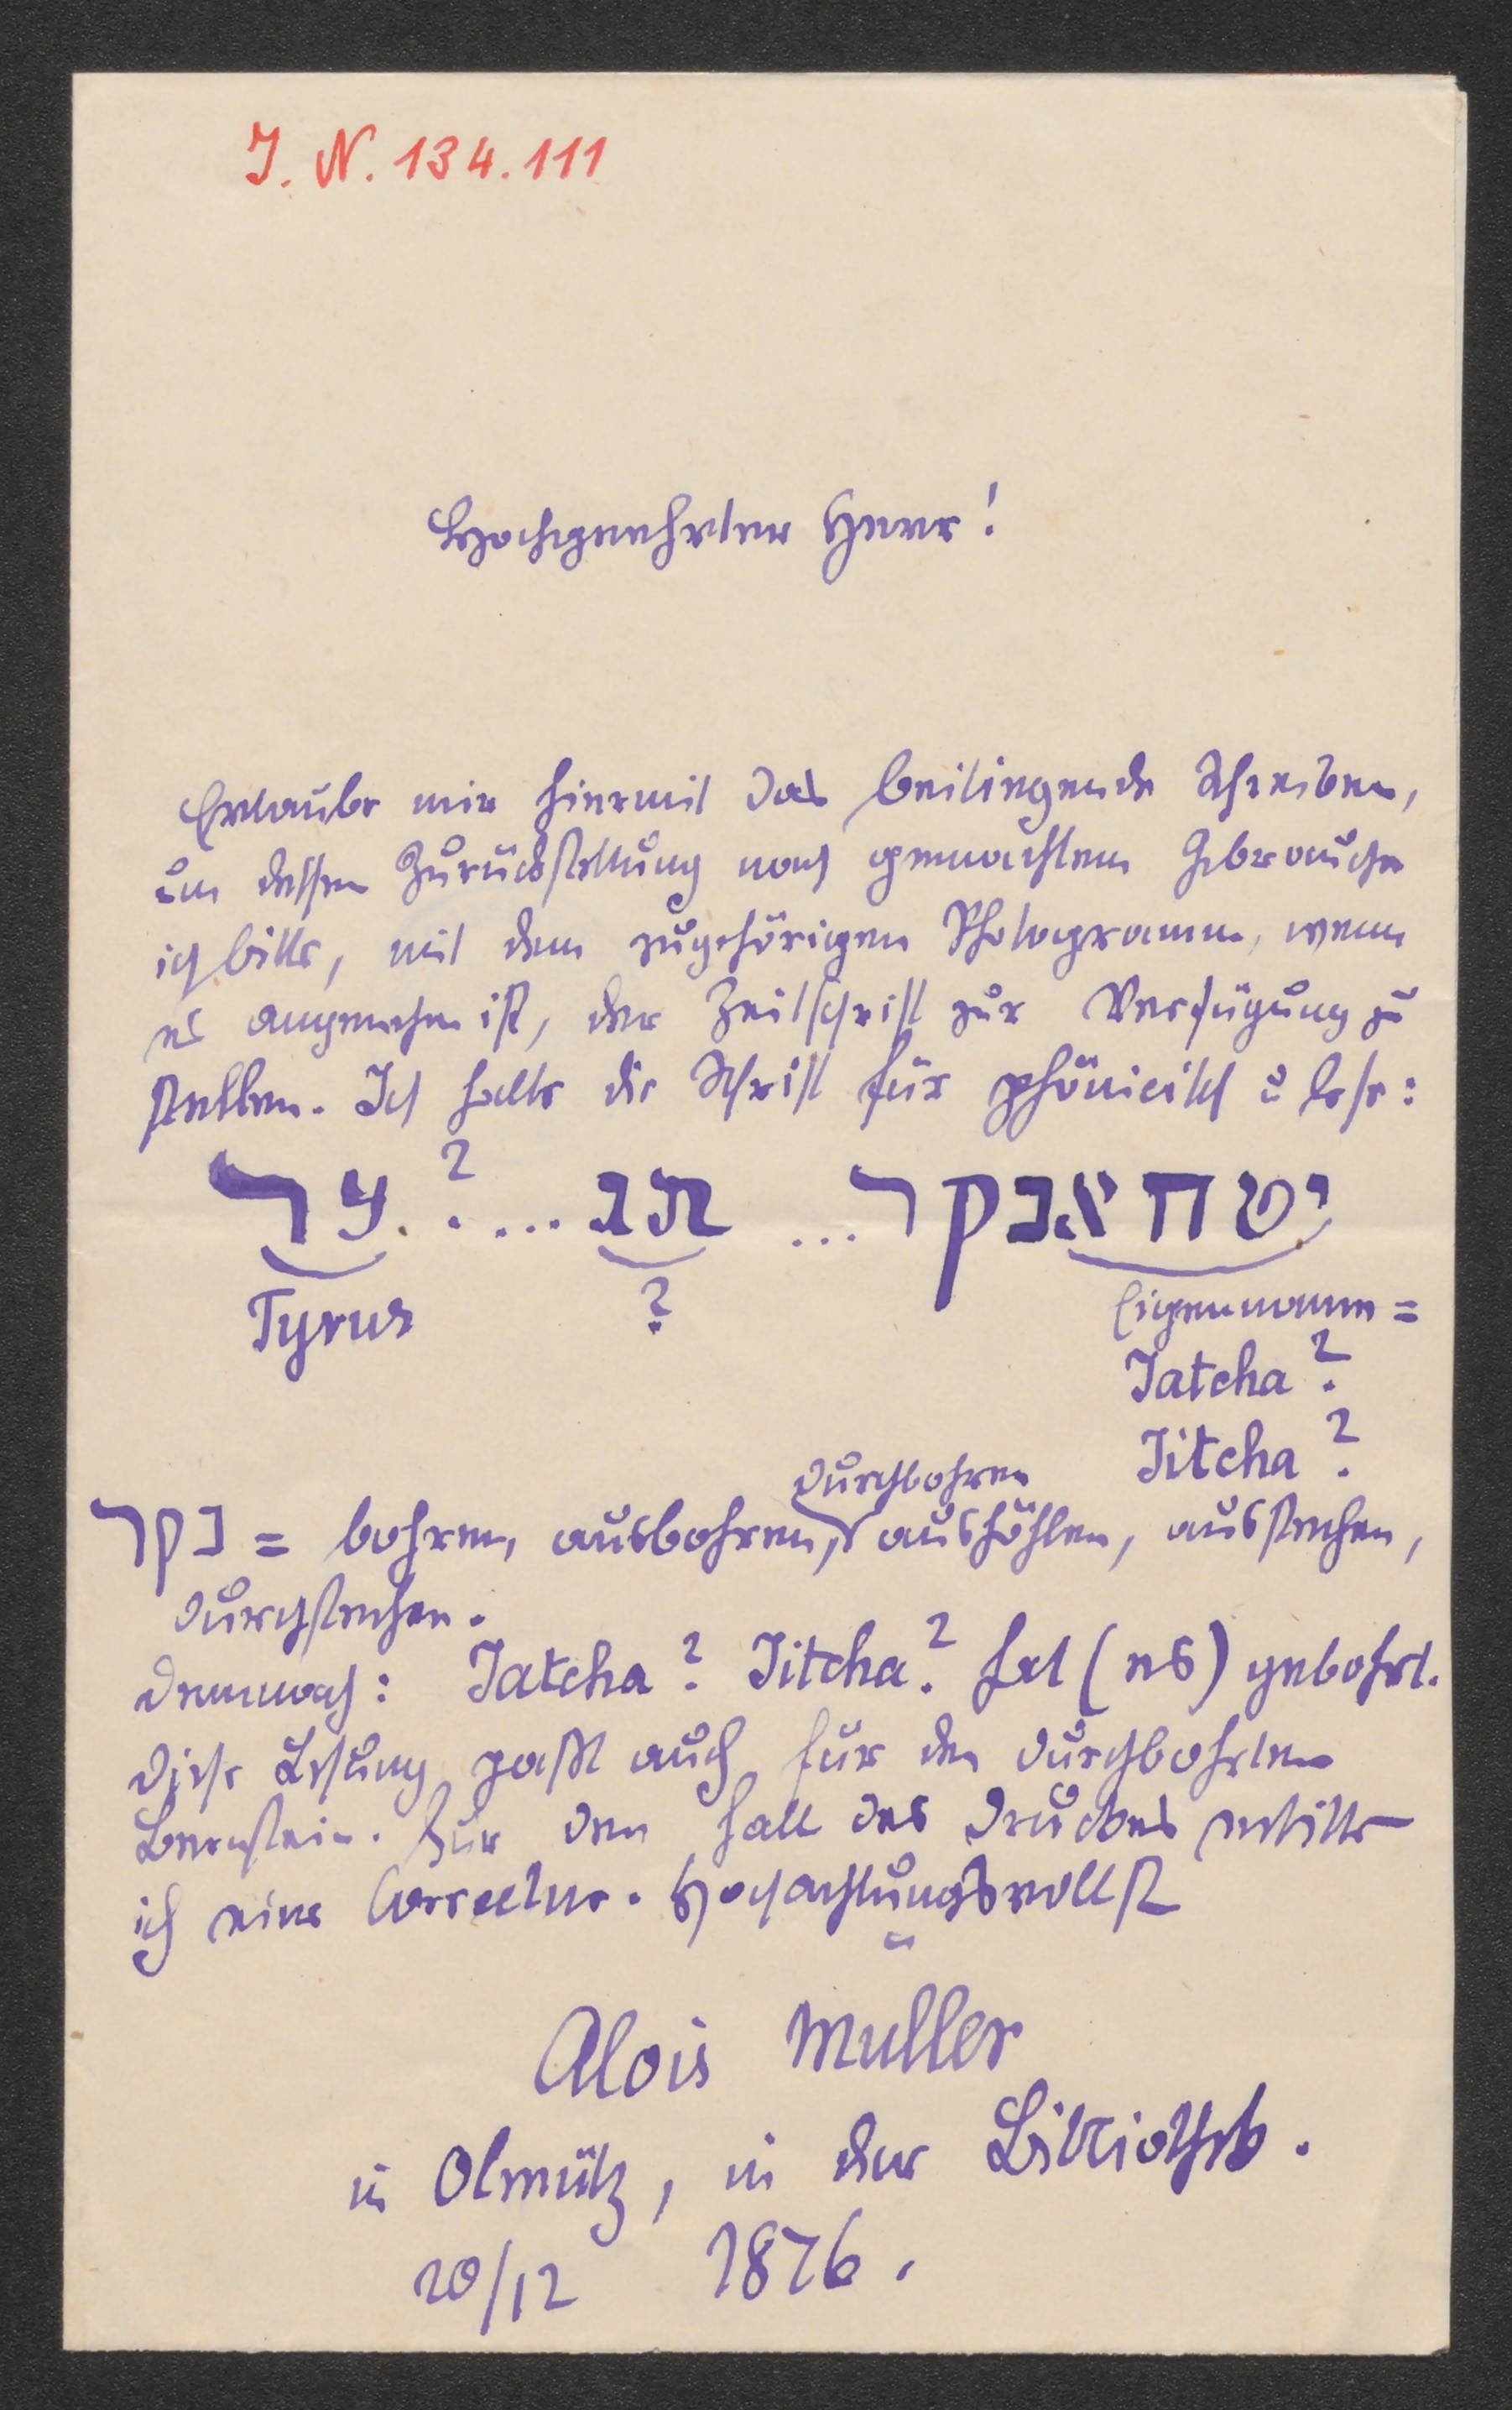 J. N. 134.111
Hochgeehrter Herr!
Erlaube mir hiermit das beiliegende Schreiben,
um dessen Zurückstellung nach gemachtem Gebrauche
ich bitte, mit dem zugehörigen Photogramm, wenn
es angenehm ist, der Zeitschrift zur Verfügung zu
stellen. Ich halte die Schrift für phönicisch u lese:
יטחאנקר ... תב ... . ? . צר
Tyrus ? Eigenname =
Jatcha?
Jitcha?
durchbohren
נקר = bohren, ausbohren, aushöhlen, ausstechen,
durchstechen.
Demnach: Jatcha? Jitcha? hat (es) gebohrt.
Diese Lesung paßt auch für den durchbohrten
Bernstein. Für den Fall des Druckes erbitte
ich eine Correctur. Hochachtungsvollst
Alois Müller
in Olmütz, in der Bibliothek.
20/12 1876.